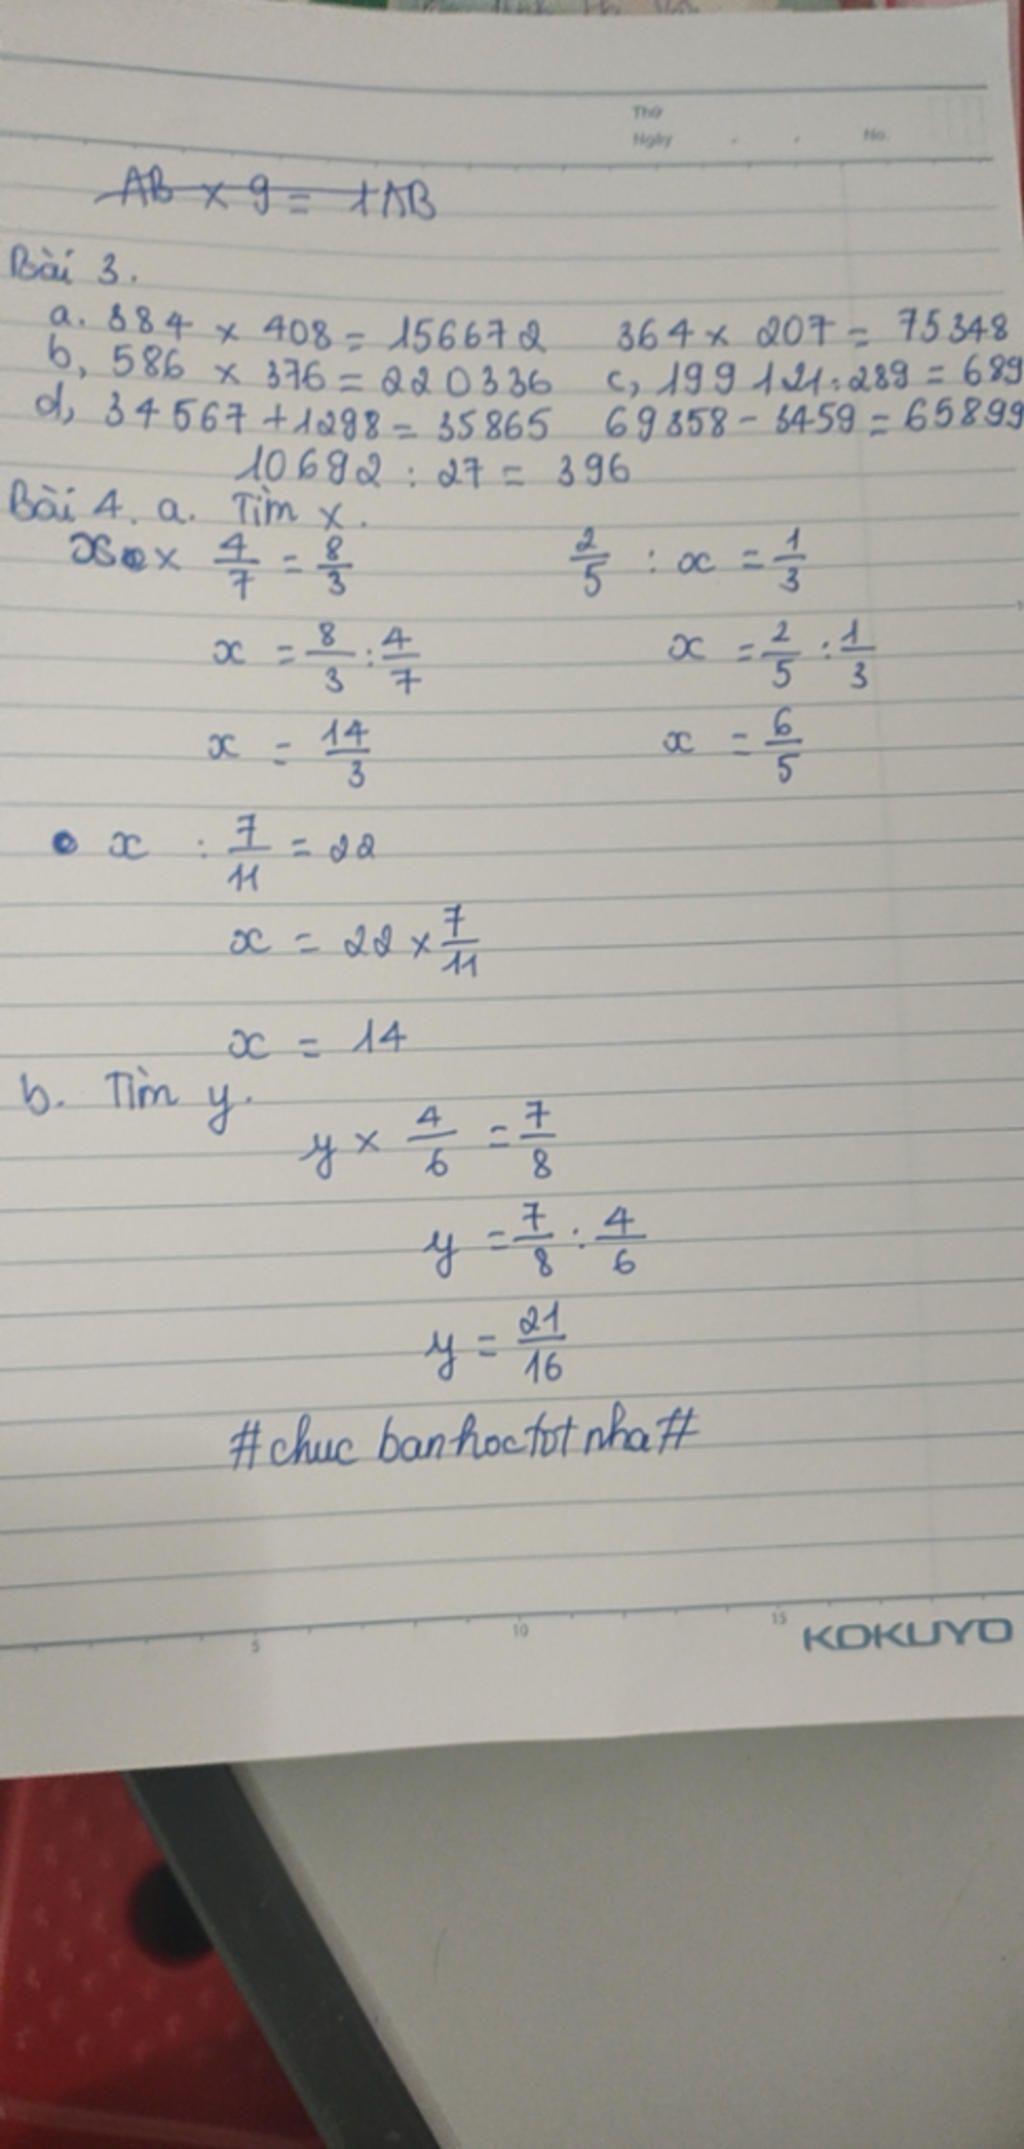 Thứ
Ngày . . No.
AB × 9 = 1AB
Bài 3.
a. 384 × 408 = 156672 364 × 207 = 75348
b, 586 × 376 = 220336 c, 199121 : 289 = 689
d, 34567 + 1298 = 35865 69358 - 3459 = 65899
10692 : 27 = 396
Bài 4. a. Tìm x.
x × 4/7 = 8/3 2/5 : x = 1/3
x = 8/3 : 4/7 x = 2/5 : 1/3
x = 14/3 x = 6/5
• x : 7/11 = 22
x = 22 × 7/11
x = 14
b. Tìm y.
y × 4/6 = 7/8
y = 7/8 : 4/6
y = 21/16
#chuc banhoctotnha#
5 10 15
KOKUYO